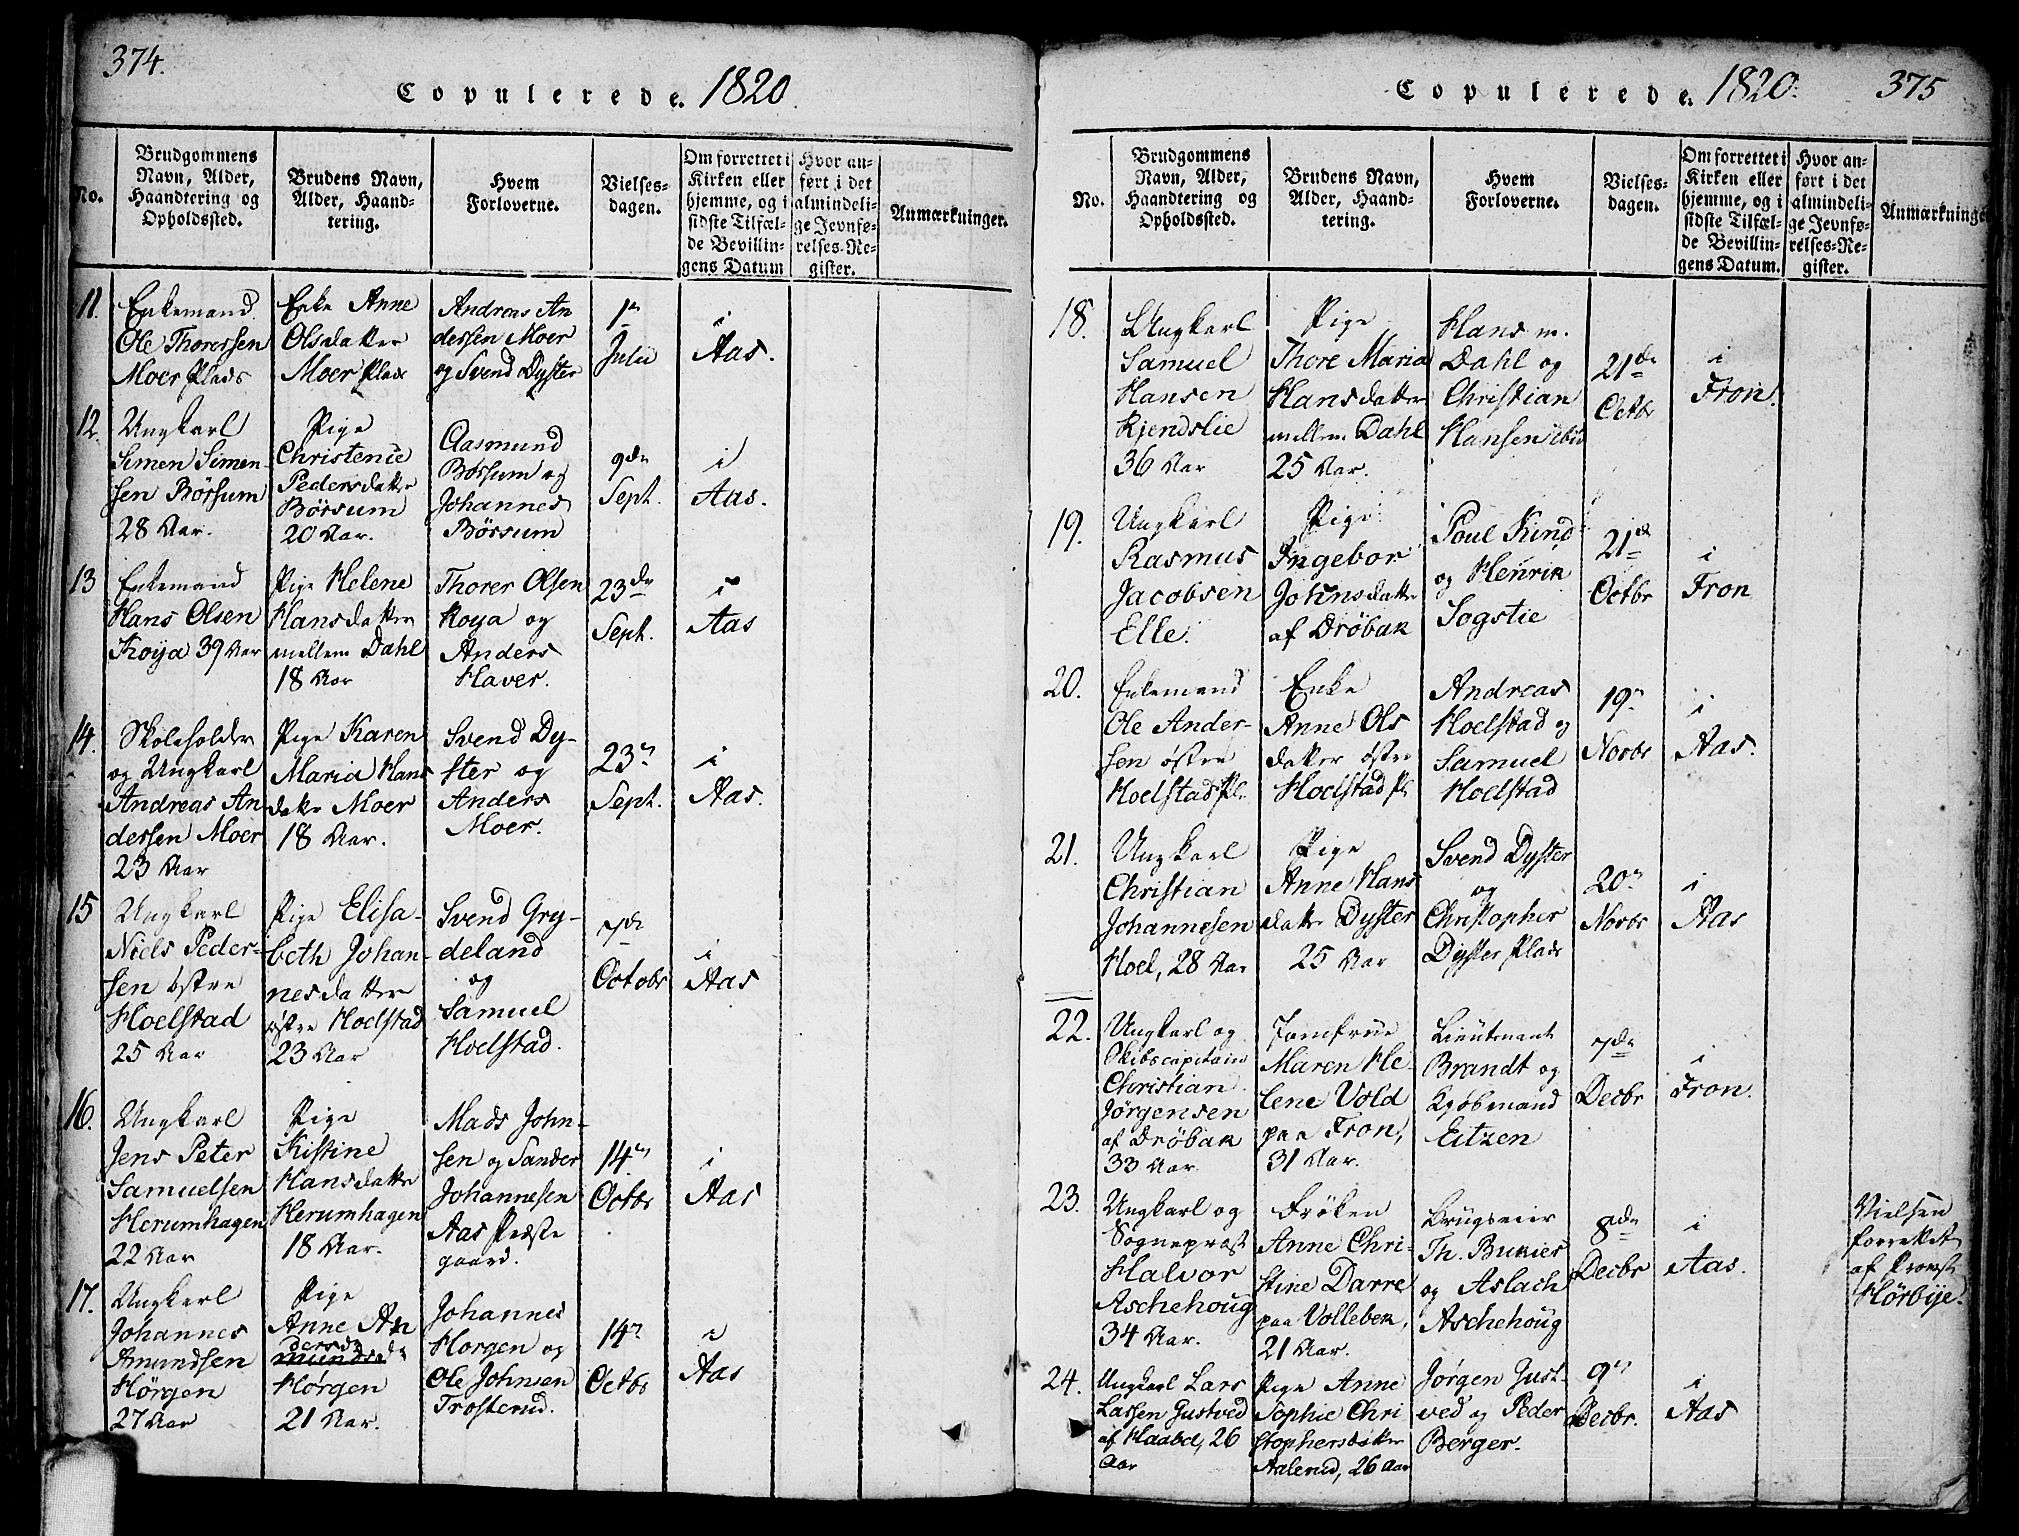 374.
Copulerede. 1820.
No.
Brudgommens
Navn, Alder,
Haandtering og
Opholdssted.
Brudens Navn,
Alder, Haand-
tering.
Hvem
Forloverne.
Vielses-
dagen.
Om forrettet i
Kirken eller
hjemme, og i
sidste Tilfæl-
de Bevillin-
gens Datum
Hvor an-
ført i det
almindeli-
ge Jevnfø-
relses-Re-
gister.
Anmærkninger.
11.
Enkemand
Ole Thorersen
Moer Plads
Enke Anne
Olsdatter
Moer Plads
Andreas An
dersen Moer
og Svend Dyster
1n
Julii
i
Aas.
12.
Ungkarl
Simen Simen-
sen Börsum
28 Aar.
Pige
Christence
Pedersdatter
Börsum
20 Aar.
Aasmund
Börsum og
Johannes
Börsum
9de
Sept.
i
Aas.
13
Enkemand
Hans Olsen
Kroya 39 Aar
Pige Helene
Hansdatter
mellem Dahl
18 Aar
Thorer Olsen
Roya og
Anders
Haver.
23de
Sept.
i
Aas
14.
Skoleholder
og Ungkarl
Andreas An
dersen Moer
23 Aar
Pige Karen
Maria Hans
datr Moer
18 Aar.
Svend Dy-
ster og
Anders
Moer.
23n
Sept.
i
Aas.
15
Ungkarl
Niels Peder-
sen östre
Hoelstad
25 Aar
Pige Elisa-
beth Johan-
nesdatter
östre Hoelstad
23 Aar
Svend Gry-
deland
og
Samuel
Hoelstad.
7de
Octobr
i
Aas
16.
Ungkarl
Jens Peter
Samuelsen
Herumhagen
22 Aar
Pige
Kistine
Hansdatter
Herumhagen
18 Aar.
Mads John-
sen og Sander
Johannesen
Aas Præste
gaard.
14n
Octbr
i
Aas
17.
Ungkarl
Johannes
Amundsen
Hörgen
27 Aar
Pige
Anne An
dersd
mundsdr
Hörgen
21 Aar.
Johannes
Horgen og
Ole Johnsen
Trosterud.
14n
Octbr
i
Aas
Copulerede. 1820. 375
No.
Brudgommens
Navn, Alder,
Haandtering og
Opholdssted.
Brudens Navn,
Alder, Haand-
tering.
Hvem
Forloverne.
Vielses-
dagen.
Om forrettet i
Kirken eller
hjemme, og i
sidste Tilfæl-
de Bevillin-
gens Datum.
Hvor an-
ført i det
almindeli-
ge Jevnfø-
relses-Re-
gister.
Anmærkninge
18.
Ungkarl
Samuel
Hansen
Kjendslie
36 Aar
Pige
Thore Maria
Hansdatter
mellem Dahl
25 Aar.
Hans m.
Dahl og
Christian
Hansen ibid
21de
Octbr
i
Fron.
19.
Ungkarl
Rasmus
Jacobsen
Elle.
Pige
Ingebor
Johnsdatter
af Dröbak
Poul Kind
og Henrik
Sogstie
21de
Octbr
i
Fron
20.
Enkemand
Ole Ander-
sen östre
Hoelstad Pl.
Enke
Anne Ols
datter östre
Hoelstad Pl.
Andreas
Hoelstad og
Samuel
Hoelstad
19n
Novbr
i
Aas.
21.
Ungkarl
Christian
Johannesen
Hoel, 28 Aar
Pige
Anne Hans
datter Dyster
25 Aar
Svend Dyster
og
Christopher
Dyster Plads
20n
Novbr
i
Aas
22.
Ungkarl og
Skibscapitain
Christian
Jörgensen
af Dröbak
33 Aar.
Jomfrue
Maren He-
lene Vold
paa Fron,
31 Aar.
Lieutenant
Brandt og
Kjöbmand
Eitzen
7de
Decbr
i
Fron.
23.
Ungkarl og
Sognepræst
Halvor
Aschehoug
34 Aar.
Fröken
Anne Chri-
stine Darre
paa Vollebek,
21 Aar.
Brugseier
Th. Bukier
og Aslach
Aschehoug
8de
Decbr
i
Aas.
Vielsen
forrettet
af Provst
Hörbye.
24.
Ungkarl Lars
Larsen Gustved
af Haabel, 26
Aar
Pige Anne
Sophie Chri
stophersdatter
Aalerud, 26 Aar
Jörgen Gust-
ved og Peder
Berger.
9n
Decbr.
i
Aas